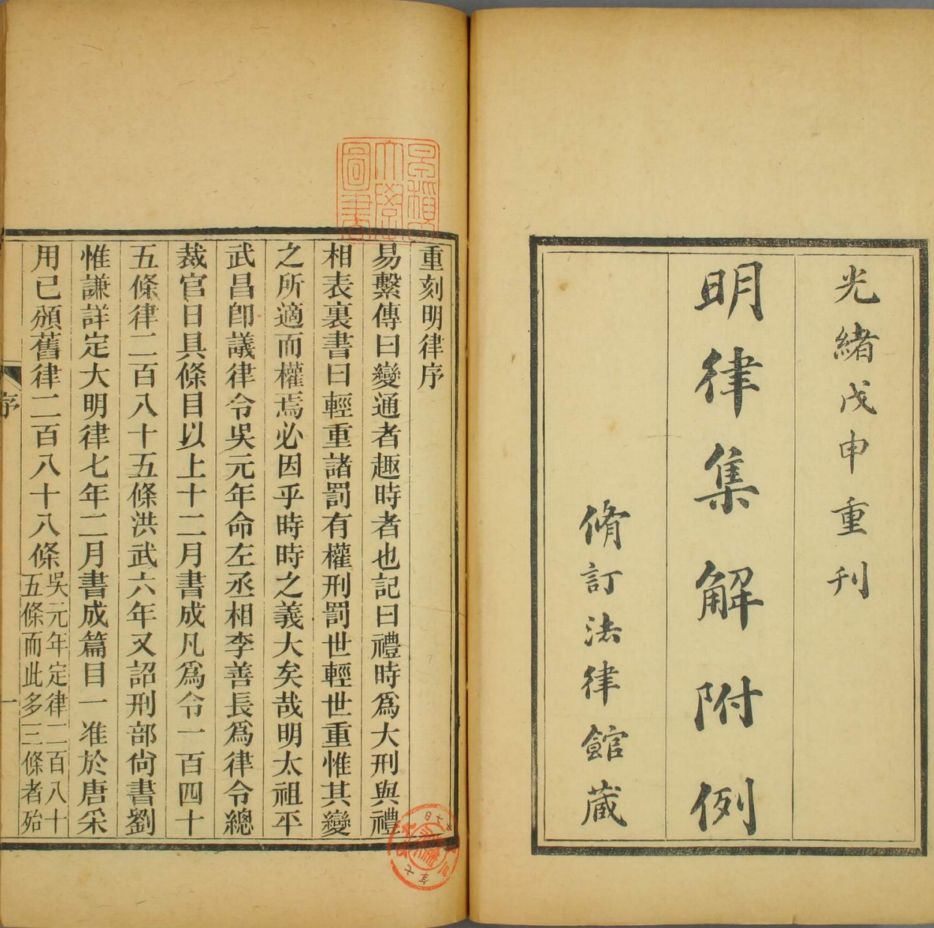 光緒戊申重刊
明律集解附例
脩訂法律館藏
重刻明律序
易繫傳曰變通者趣時者也記曰禮時爲大刑與禮
相表裏書曰輕重諸罰有權刑罰世輕世重惟其變
之所適而權焉必因乎時時之義大矣哉明太祖平
武昌卽議律令吳元年命左丞相李善長爲律令總
裁官日具條目以上十二月書成凡爲令一百四十
五條律二百八十五條洪武六年又詔刑部尙書劉
惟謙詳定大明律七年二月書成篇目一准於唐采
用已頒舊律二百八十八條
吳元年定律二百八十
五條而此多三條者殆
序
一